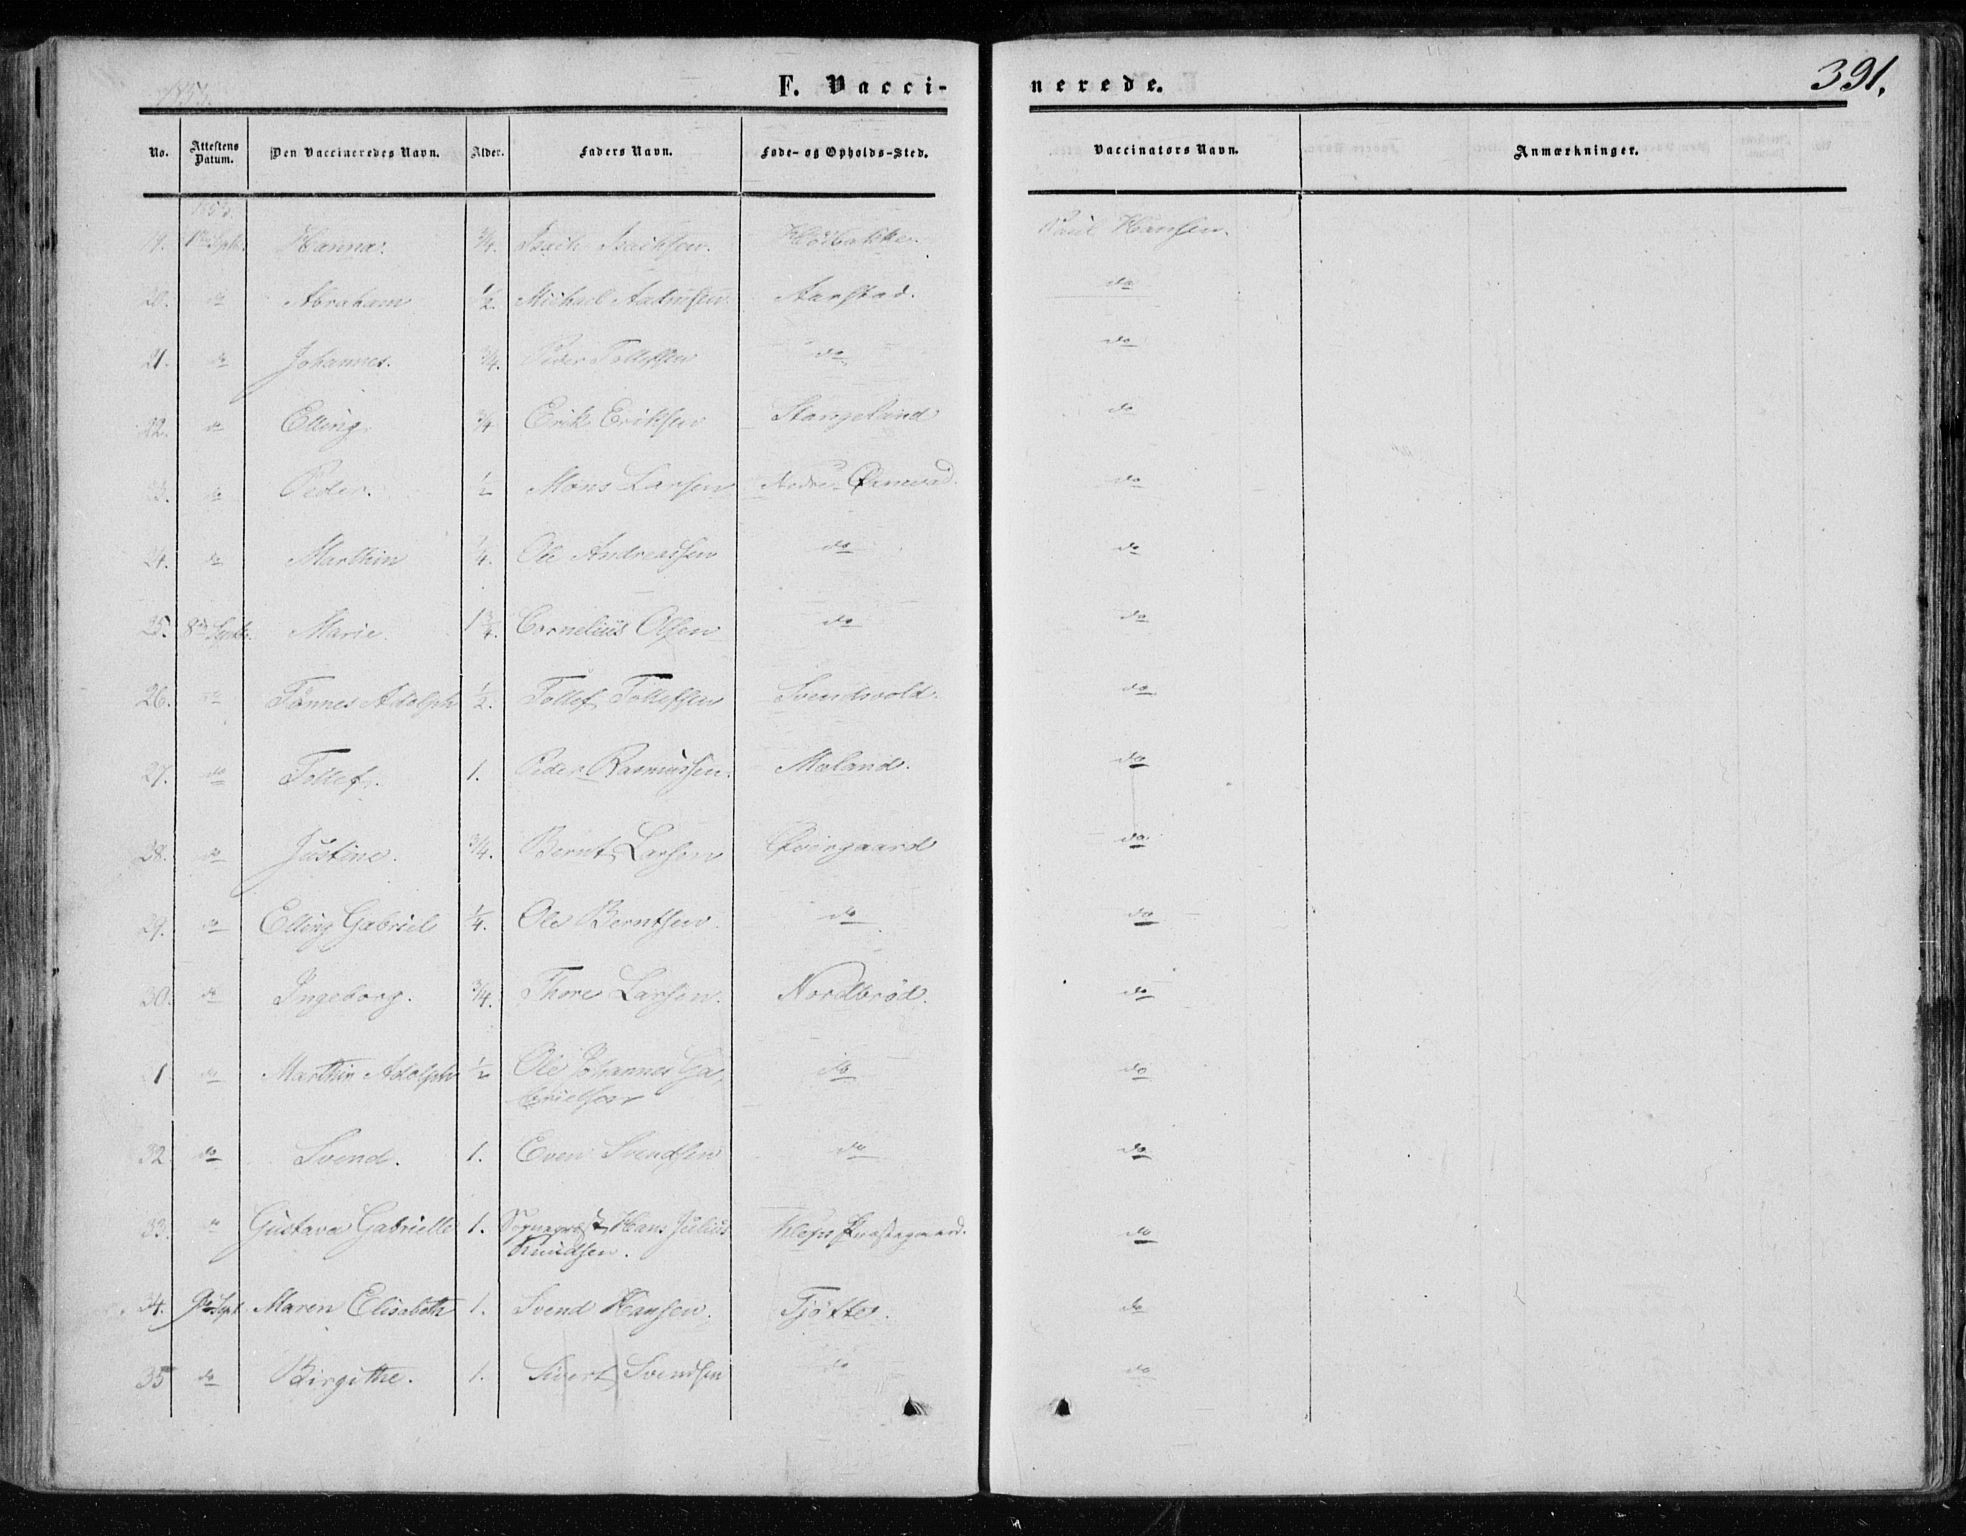 F. Vacci-nerede.
391.
No. Attestens Datum. Den Vaccineredes Navn. Alder. Faders Navn. Føde- og Opholds-Sted. Vaccinators Navn. Anmærkninger.
19. Septb. Hanna. 3/4. Isach Isachsen. Paul Hansen.
20. do Abraham 1/2 Michael Aadnesen Aarstad. do
21. do Johannes. 3/4. Peder Tollefsen do do
22. do Elling. 3/4 Erik Eriksen Stangeland do
23. do Peder. 1/2 Mons Larsen do
24. do Marthin 1/4. Ole Andreassen do do
25. 8de Septbr. Marie. 1 3/4. Cornelius Olsen do do
26. do Tønnes Adolph 1/2. Tollef Tollefsen Svendsvold. do
27. do Tollef. 1. Peder Rasmussen. Moland. do
28. do Justine. 3/4. Bernt Larsen Øirgaard do
29. do Elling Gabriel 1/4. Ole Berntsen. do do
30. do Ingeborg. 3/4. Thore Larsen. Nordbrød. do
31 do Marthin Adolph 1/2 Ole Johannes Ga- do do
brielsen
32. do Svend. 1. Even Svendsen do do
33. " Gustava Gabrielle 1. Sognepræst Hans Julius Klep Præstegaard. do
Knudsen.
34. 9de Sept Maren Elisabeth 1. Svend Hansen. Tjøtte. do
35 do Birgithe. 1. Sivert Svendsen do do